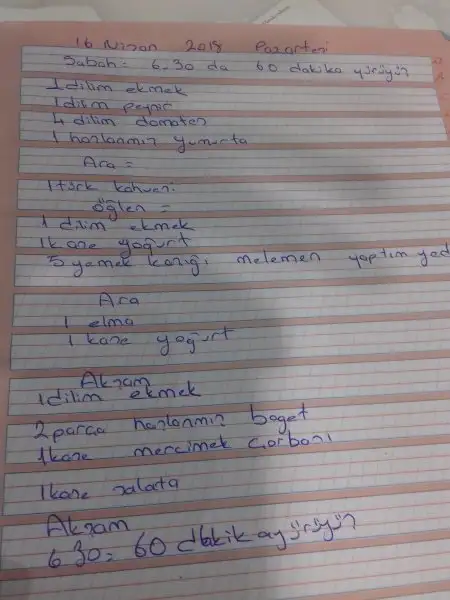 16 Nisan 2018 Pazartesi
Sabah = 6.30 da 60 dakika yürüyüş
1 dilim ekmek
1 dilim peynir
4 dilim domates
1 haşlanmış yumurta
Ara =
1 türk kahvesi
öğlen =
1 dilim ekmek
1 kase yoğurt
5 yemek kaşığı melemen yaptım yed
Ara
1 elma
1 kase yoğurt
Akşam
1 dilim ekmek
2 parça haşlanmış baget
1 kase mercimek çorbası
1 kase salata
Akşam
6 30= 60 dakik ayürüyüş